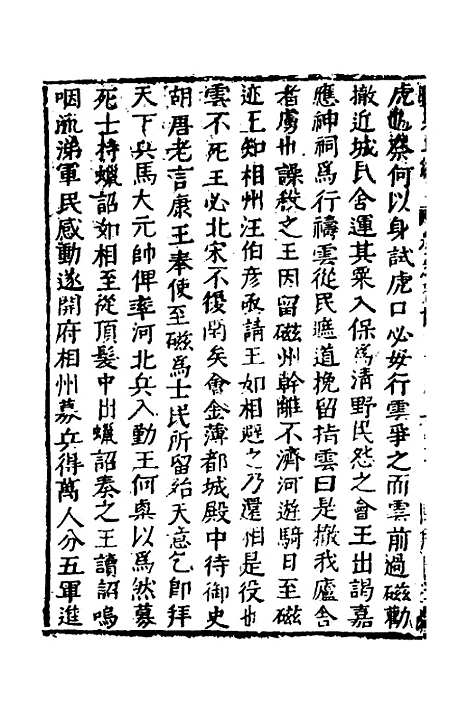 虎也蔡何以身試虎口必毋行雲爭之而雲前過磁勸
撤近城民舍運其粟入保為清野民怨之會王出謁嘉
應神祠為行禱雲從民遮道挽留指雲曰是撤我廬舍
者虜也譟殺之王因留磁州幹離不濟河遊騎日至磁
迹王知相州汪伯彥亟請王如相避之乃還相是役也
雲不死王必北宋不復南矣會金薄都城殿中侍御史
胡唐老言康王奉使至磁為士民所留殆天意乞即拜
天下兵馬大元帥俾率河北兵入勤王何㮚以為然募
死士持蠟詔如相至從頂髮中出蠟詔奏之王讀詔嗚
咽流涕軍民感動遂開府相州募兵得萬人分五軍進